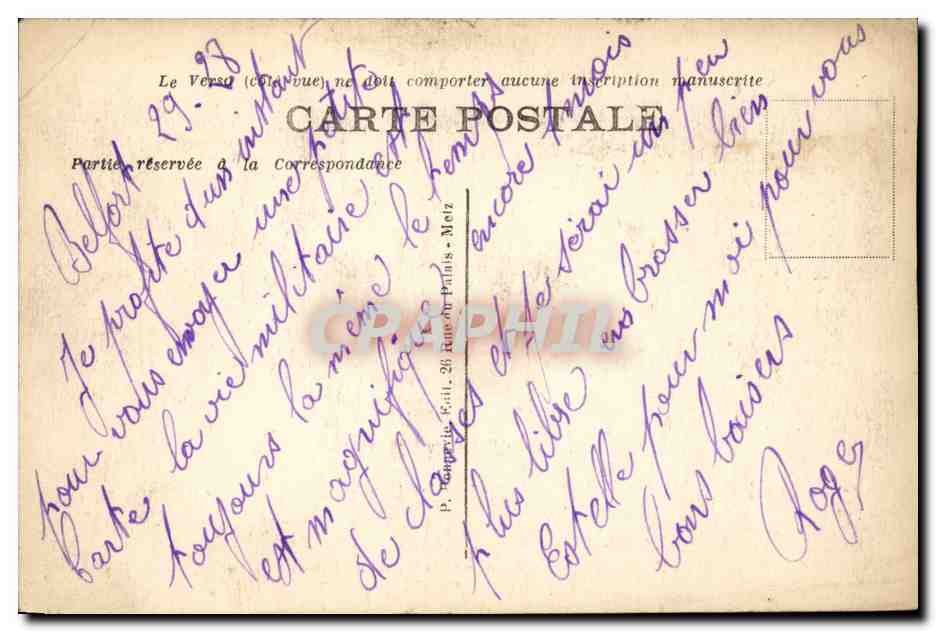 Le Verso (côté vue) ne doit comporter aucune inscription manuscrite
CARTE POSTALE
Partie réservée à la Correspondance
P. Edit. 26 Rue du Palais - Metz
CPARPHIL
Belfort 29.-28
Je profite d'uns instant
pour vous envoyer une petite
Carte la vie militaire est
toujours la même le temps
est magnifique encore 1 mois
de classes et je serai un peu
plus libre embrasser bien
Estelle pour moi pour vous
bons baisers
Roger